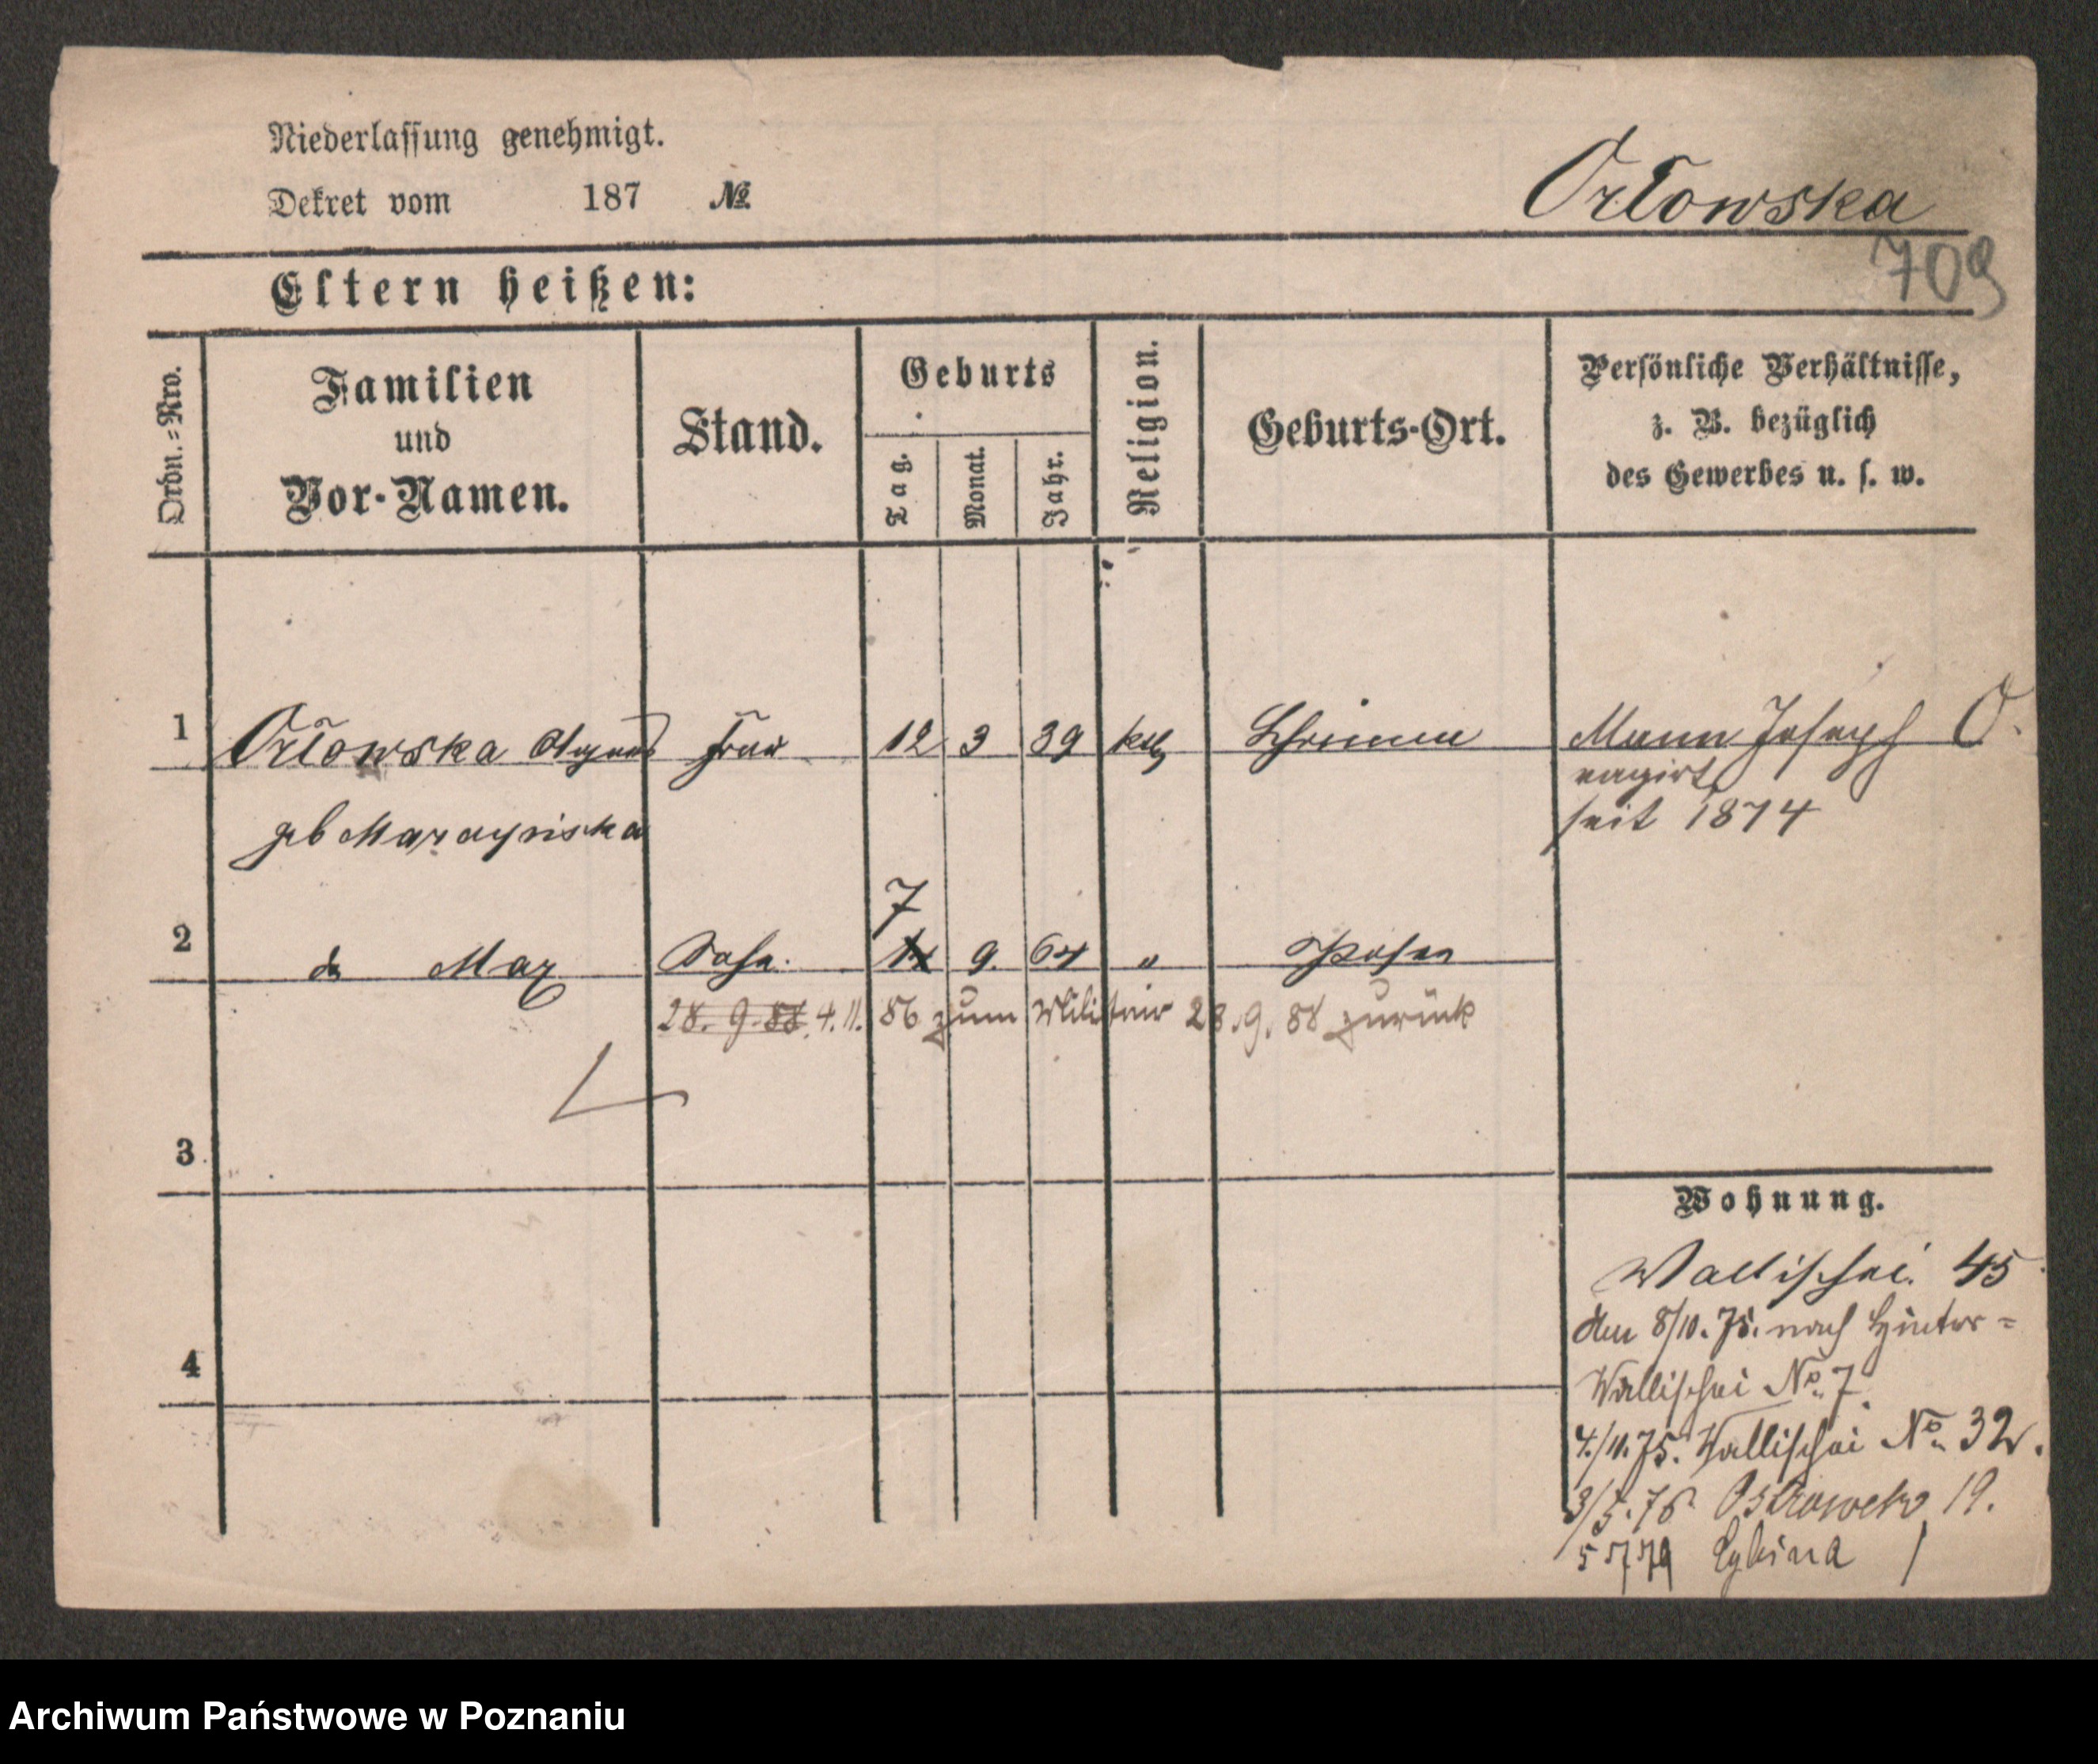 Niederlassung genehmigt.
Dekret vom 187 №
Orłowska
709
Eltern heißen:
Ordn.-Nro.
Familien
und
Vor-Namen.
Stand.
Geburts
Tag.
Monat.
Jahr.
Religion.
Geburts-Ort.
Persönliche Verhältnisse,
z. B. bezüglich
des Gewerbes u. s. w.
1 Orłowska Agnes Frau 12 3 39 kath Schrimm Mann Joseph O.
vagirt
seit 1874
geb
7
2 do Max Sohn. 9. 64 " Posen
28. 9. 88 4. 11. 86 zum Militair 28. 9. 88 zurück
3
Wohnung.
Wallischei. 45
den 8/10. 75. nach Hinter-
Wallischei No. 7.
4
4./11. 75. Wallischei No. 32.
3/5. 76 Ostrowek 19.
79 Cybina 1
Archiwum Państwowe w Poznaniu